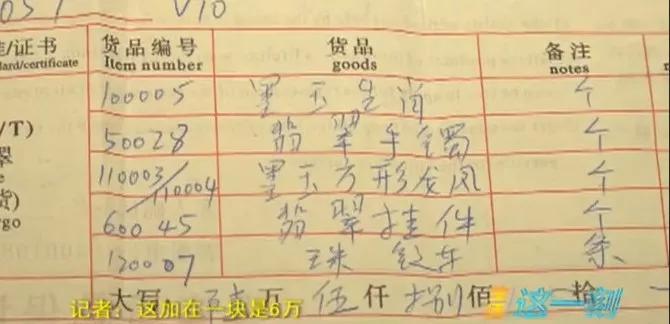 V10
准/证书 货品编号 货品 备注
dard/certificate Item number goods notes
100005 墨玉生肖 个
/T) 50028 翡翠手镯 个
翠
110003/110004 墨玉方形龙凤 个
货)
60045 翡翠挂件 个
rgo
120007 玉珠 手车 条
大写: 陆万 伍仟 捌佰 拾
记者:这加在一块是6万
这一刻